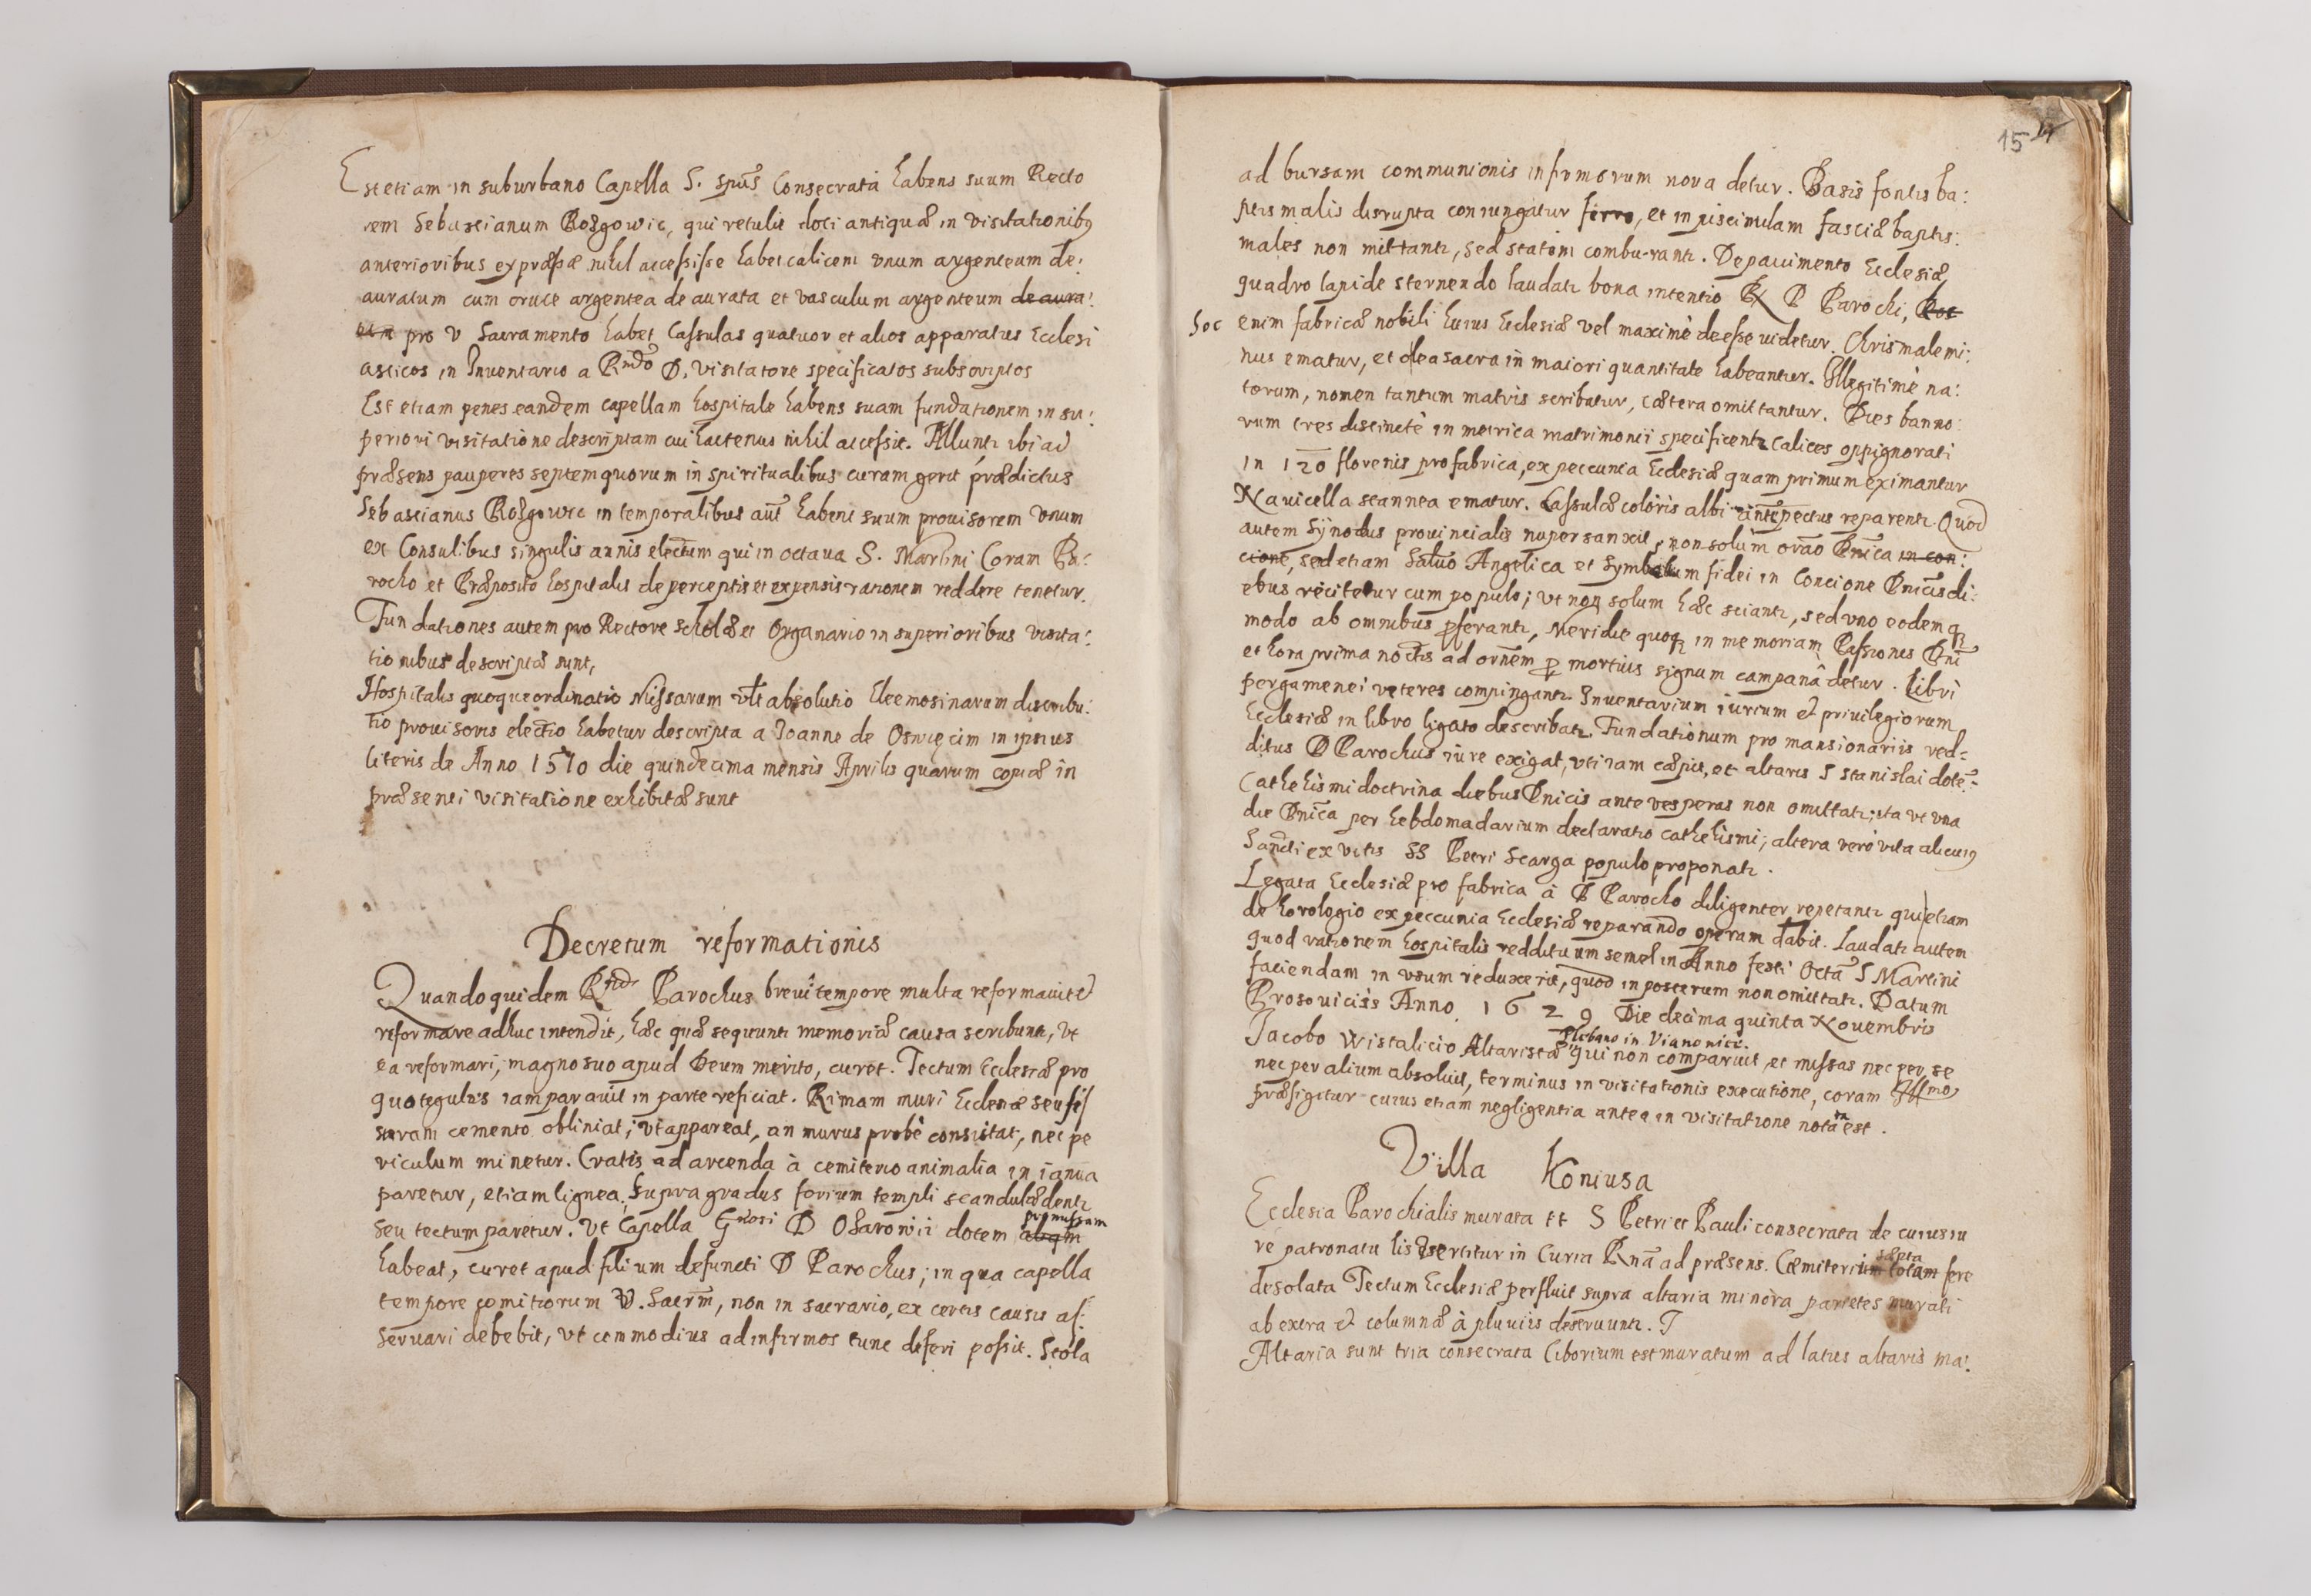 Est etiam in suburbano Capella S. Spũs Consecrata habens suum Recto
rem Sebastianum Rozgowic, qui retulit doti antiquæ in visitationibꝫ
anterioribus expræssæ nihil accessisse habet calicem vnum argenteum de:
auratum cum cruce argentea de aurata et vasculum argenteum de aura:
pro V Sacramento habet Cassulas quatuor et alios apparatus Ecclesi
asticos in Inventario a Rndo D. Visitatore specificatos subscriptos
Est etiam penes eandem capellam hospitale habens suam fundationem in su:
periori visitatione descriptam cui hactenus nihil accessit. Alluntr ibi ad
præsens pauperes septem quorum in spiritualibus curam gerit prædictus
Sebastianus Rozgowic in temporalibus aũt habent suum prouisorem vnum
ex Consulibus singulis annis electum qui in octaua S. Martini Coram Pa:
rocho et Præposito hospitalis de perceptis et expensis rationem reddere tenetur.
Fundationes autem pro Rectore Scholæ et Organario in superioribus visita:
tionibus descriptæ sunt,
Hospitalis quoque ordinatio Missarum vlt absolutio Eleemosinarum distribu:
tio prouisoris electio habetur descripta a Joanne de Oswięcim in ipsius
literis de Anno 1570 die quindecima mensis Aprilis quarum copiæ in
præsenti visitatione exhibitæ sunt
Decretum reformationis
Quandoquidem Rndus Parochus breui tempore multa reformauit et
reformare adhuc intendit, hæc quæ sequuntr memoriæ causa scribuntr, vt
ea reformari, magno suo apud Deum merito, curet. Tectum Ecclesiæ pro
quo tegulas iam parauit in parte reficiat. Rimam muri Ecclesiæ seu fis
suram cemento obliniat; vt appareat, an murus probè consistat, nec pe
riculum minetur. Cratis ad arcenda à cemiterio animalia in ianua
paretur, etiam lignea. Supra gradus forium templi scandulæ dentr
seu tectum paretur. Vt Capella Gnosi D Ozarowii dotem aliqm
pro missam
habeat, curet apud filium defuncti D Parochus; in qua capella
tempore comitiorum V. Sacrm̃, non in sacrario, ex certis causis as:
seruari debebit, vt commodius ad infirmos tunc deferi possit. Stola
15
ad bursam communionis infirmorum noua detur. Basis fontis ba:
ptismalis disrupta coniungatur ferro, et in piscinulam fasciæ baptis:
males non mittantr, sed statim comburantr. De pauimento Ecclesiæ
quadro lapide sternendo laudatr bona intentio R P Parochi, hoc
hoc enim fabricæ nobili huius Ecclesiæ vel maximè deesse uidetur. Chrismale mi:
nus ematur, et olea sacra in maiori quantitate habeantur. Illegitimè na:
torum, nomen tantum matris scribatur, cætera omittantur. Dies banno:
rum tres distinctè in metrica matrimonii specificentr Calices oppignorati
in 120 florenis pro fabrica, ex peccunia Ecclesiæ quam primum eximantur
Nauicella stannea ematur. Cassulæ coloris albi antepectus reparentr. Quod
autem Synodus prouincialis nuper sanxit, non solum orãо Dnĩca in con:
cione, sed etiam Saluõ Angelica et Symbolum fidei in Concione Dnicis di:
ebus recitetur cum populo; vt non solum hæc sciantr, sed vno eodemqꝫ
modo ab omnibus ꝓferantr, Meridie quoqꝫ in memoriam Passiones Dnĩ
et hora prima noctis ad orñem ꝓ mortuis signum campanâ detur. Libri
pergamenei veteres compingantr. Inuentarium iurium et priuilegiorum
Ecclesiæ in libro ligato describatr. Fundationum pro mansionariis red=
ditus D Parochus iure exigat, vti iam cæpit, et altaris S Stanislai dotẽ.
Cathehismi doctrina diebus Dnicis ante vesperas non omittatr; ita vt vna
die Dnĩca per hebdomadarium declaratio cathehismi; altera verò vita alicuiꝫ
Sancti ex vitis SS Petri Scarga populo proponatr.
Legata Ecclesiæ pro fabrica à D Parocho diligenter repetantr qui etiam
de horologio ex peccunia Ecclesiæ reparando operam dabit. Laudatr autem
quod rationem hospitalis reddituum semel in Anno festi Octã S Martini
faciendam in vsum reduxerit, quod in posterum non omittatr. Datum
Prosouiciis Anno. 1629 Die decima quinta Nouembris
Plebano in Vianouice
Jacobo Wistalicio Altaristæ qui non comparuit, et missas nec per se
nec per alium absoluit, terminus in visitationis executione, coram Illmo
præfigitur cuius etiam negligentia antea in visitatione notata est.
Villa Koniusa
Ecclesia Parochialis murata tt S Petri et Pauli consecrata de cuius iu
re patronatu lis vertitur in Curia Rnã ad præsens. Cæmiterium totam fere
sæpta
desolata Tectum Ecclesiæ perfluit supra altaria minora parietes murati
ab extra et columnæ à pluuiis destruuntr. T
Altaria sunt tria consecrata Ciborium est muratum ad latus altaris ma: